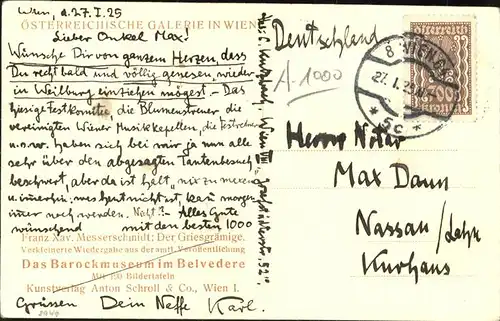 Wien, a. 27. I. 25
ÖSTERREICHISCHE GALERIE IN WIEN
Lieber Onkel Max!
Wünsche Dir von ganzem Herzen, dass
Du recht bald und völlig genesen, wieder
in Weilburg einziehen mögest. - Das
hiesige Festkomitee, die Blumenstreuer die
vereinigten Wiener Musikkapellen, die Festredner
u.s.w. haben sich bei mir ja nun alle
sehr über den abgesagten Tantenbesuch
beschwert, aber da ist halt "nix zu machen
u. immerhin, was heut nicht ist, kann morgen
immer noch werden. Alles Gute
wünschend mit den besten 1000
Franz Xav. Messerschmidt: Der Griesgrämige.
Verkleinerte Wiedergabe aus der amtl. Veröffentlichung
Das Barockmuseum im Belvedere
Mit 190 Bildertafeln
Kunstverlag Anton Schroll & Co., Wien I.
Grüssen Dein Neffe Karl.
Wien VIII
Deutschland
A-1000
8 WIEN
27. I. 25
* 5c *
700
Herrn Notar
Max Dann
Nassau/Lahn
Kurhaus